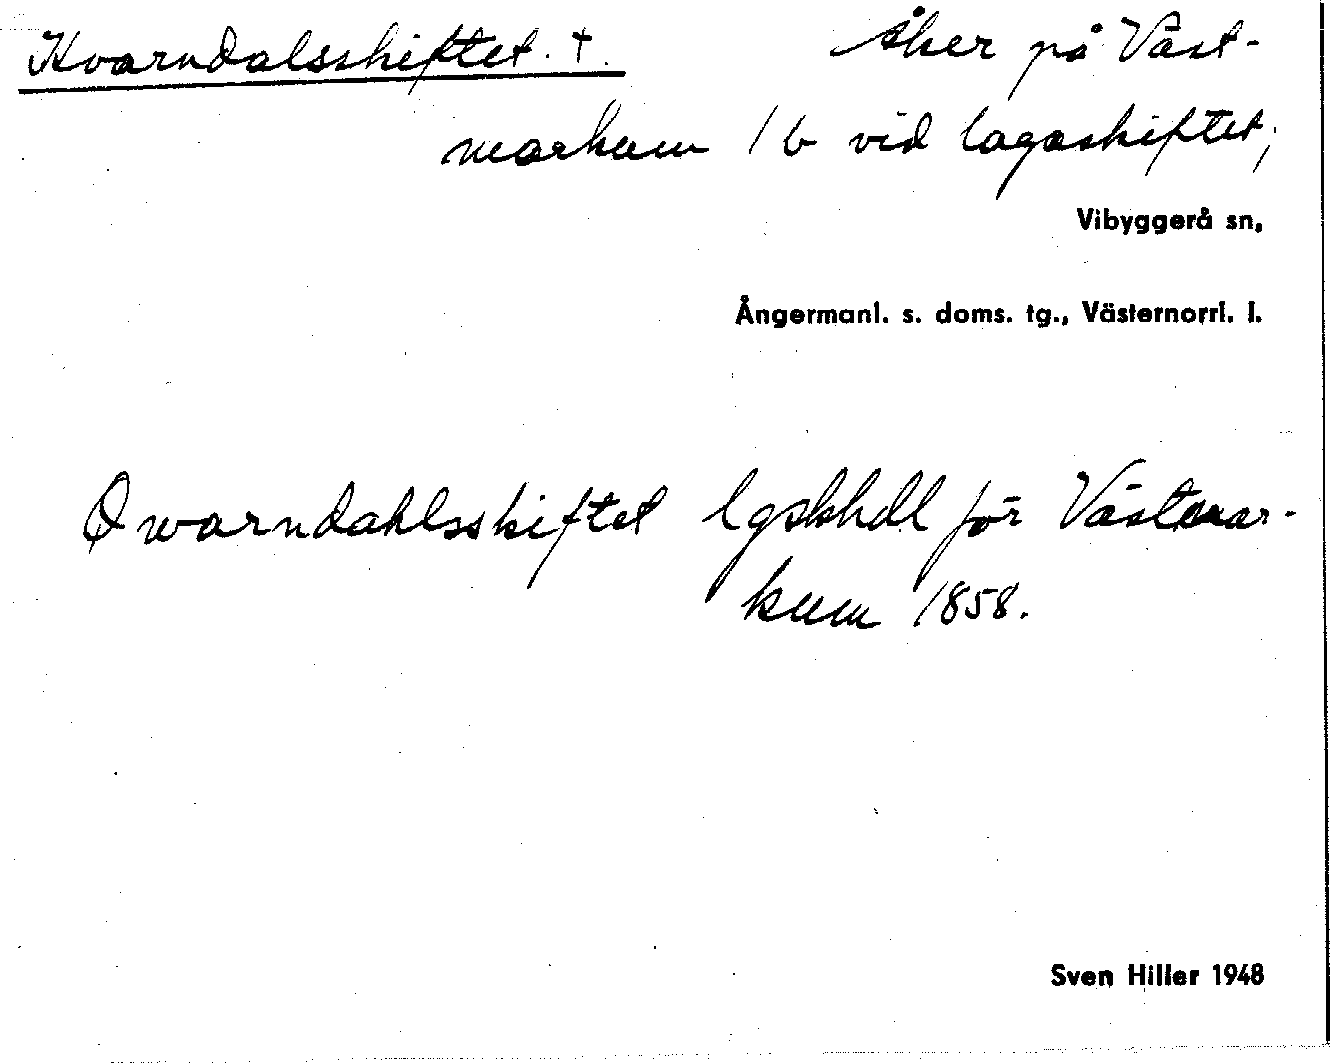 Kvarndalsskiftet. †. Åker på Väst-
markum 1 b vid lagaskiftet;
Vibyggerå sn,
Ångermanl. s. doms. tg., Västernorrl. l.
Qwarndahlsskiftet lgskhdl för Västmar-
kum 1858.
Sven Hiller 1948